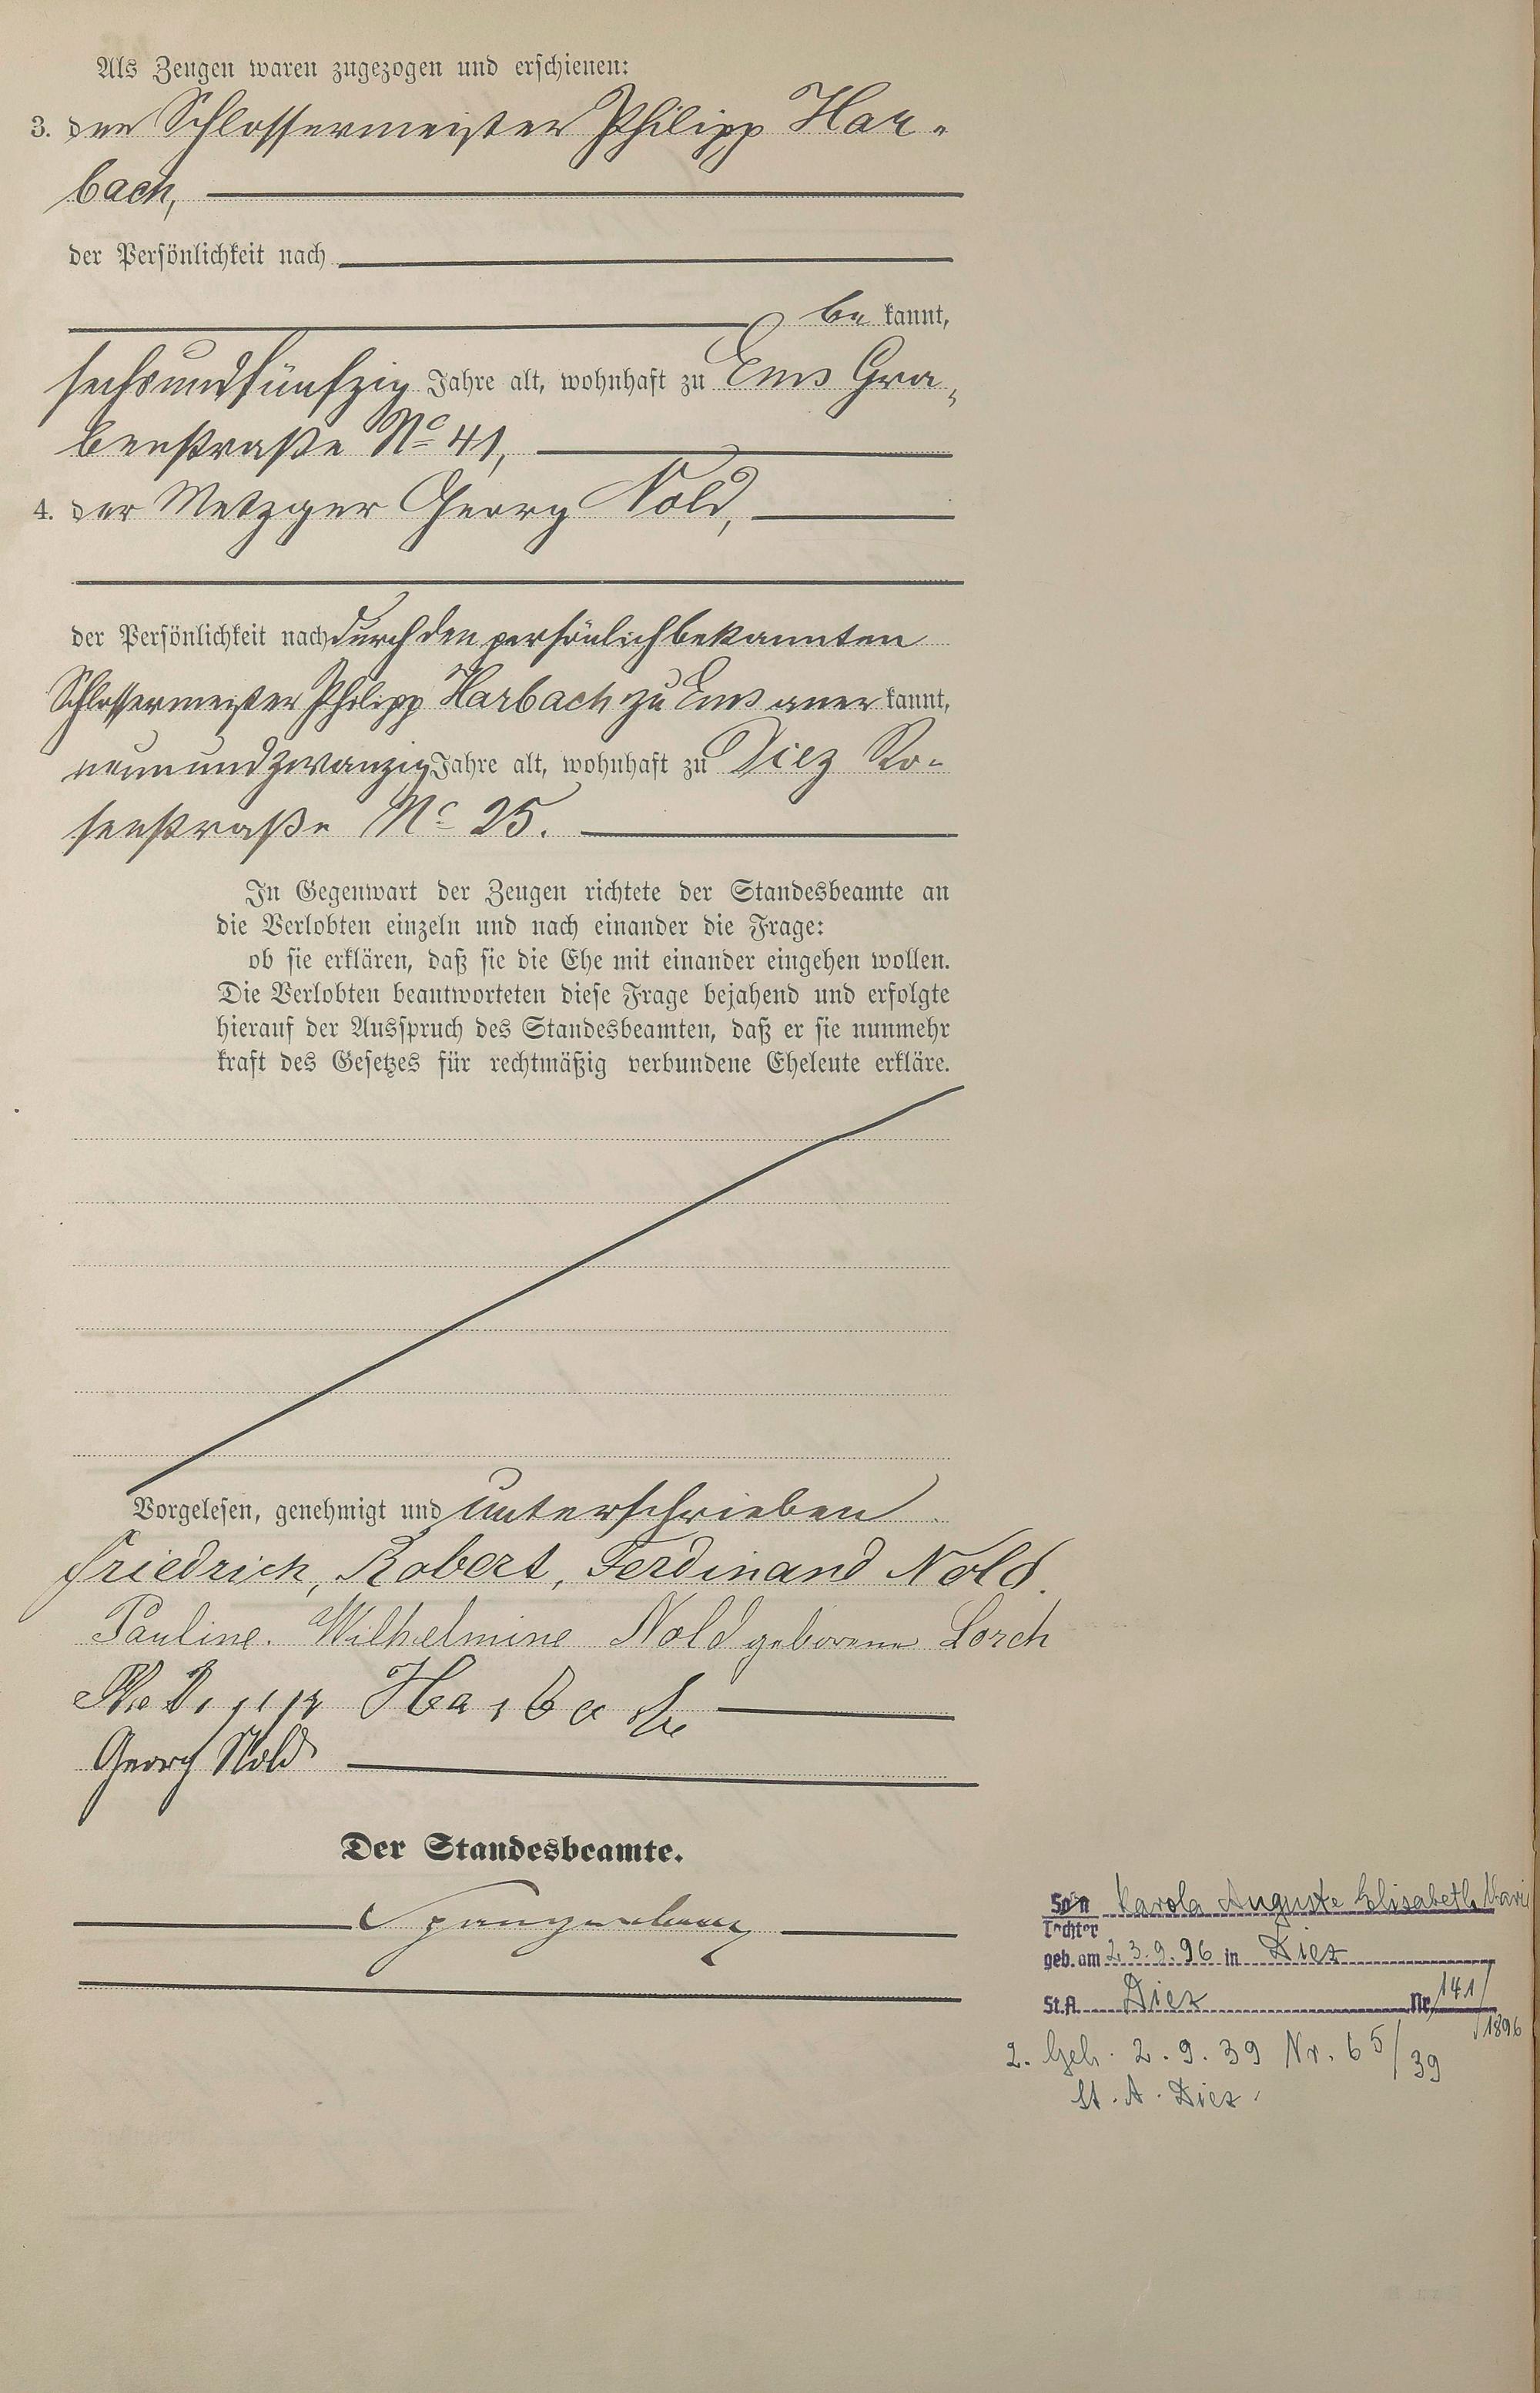 Als Zeugen waren zugezogen und erschienen:
3. der Schlossermeister Philipp Har-
bach,
der Persönlichkeit nach
be kannt,
sechsundfünfzig Jahre alt, wohnhaft zu Ems Gra-
benstraße No 41,
4. der Metzger Georg Nold,
der Persönlichkeit nach durch den persönlich bekannten
Schlossermeister Philipp Harbach zu Ems aner kannt,
neunundzwanzig Jahre alt, wohnhaft zu Diez Ro-
senstraße No 25.
In Gegenwart der Zeugen richtete der Standesbeamte an
die Verlobten einzeln und nach einander die Frage:
ob sie erklären, daß sie die Ehe mit einander eingehen wollen.
Die Verlobten beantworteten diese Frage bejahend und erfolgte
hierauf der Ausspruch des Standesbeamten, daß er sie nunmehr
kraft des Gesetzes für rechtmäßig verbundene Eheleute erkläre.
Vorgelesen, genehmigt und unterschrieben
Friedrich, Robert, Ferdinand Nold.
Pauline. Wilhelmine Nold geborene Lorch
Philipp Harbach
Georg Nold
Der Standesbeamte.
Spangenberg
Sohn Karola Auguste Elisabeth Marie
Tochter
geb. am 23.9.96 in Diez
St.A. Diez Nr. 141/
1896
2. Geh. 2.9.39 Nr. 65/39
St. A. Diez.